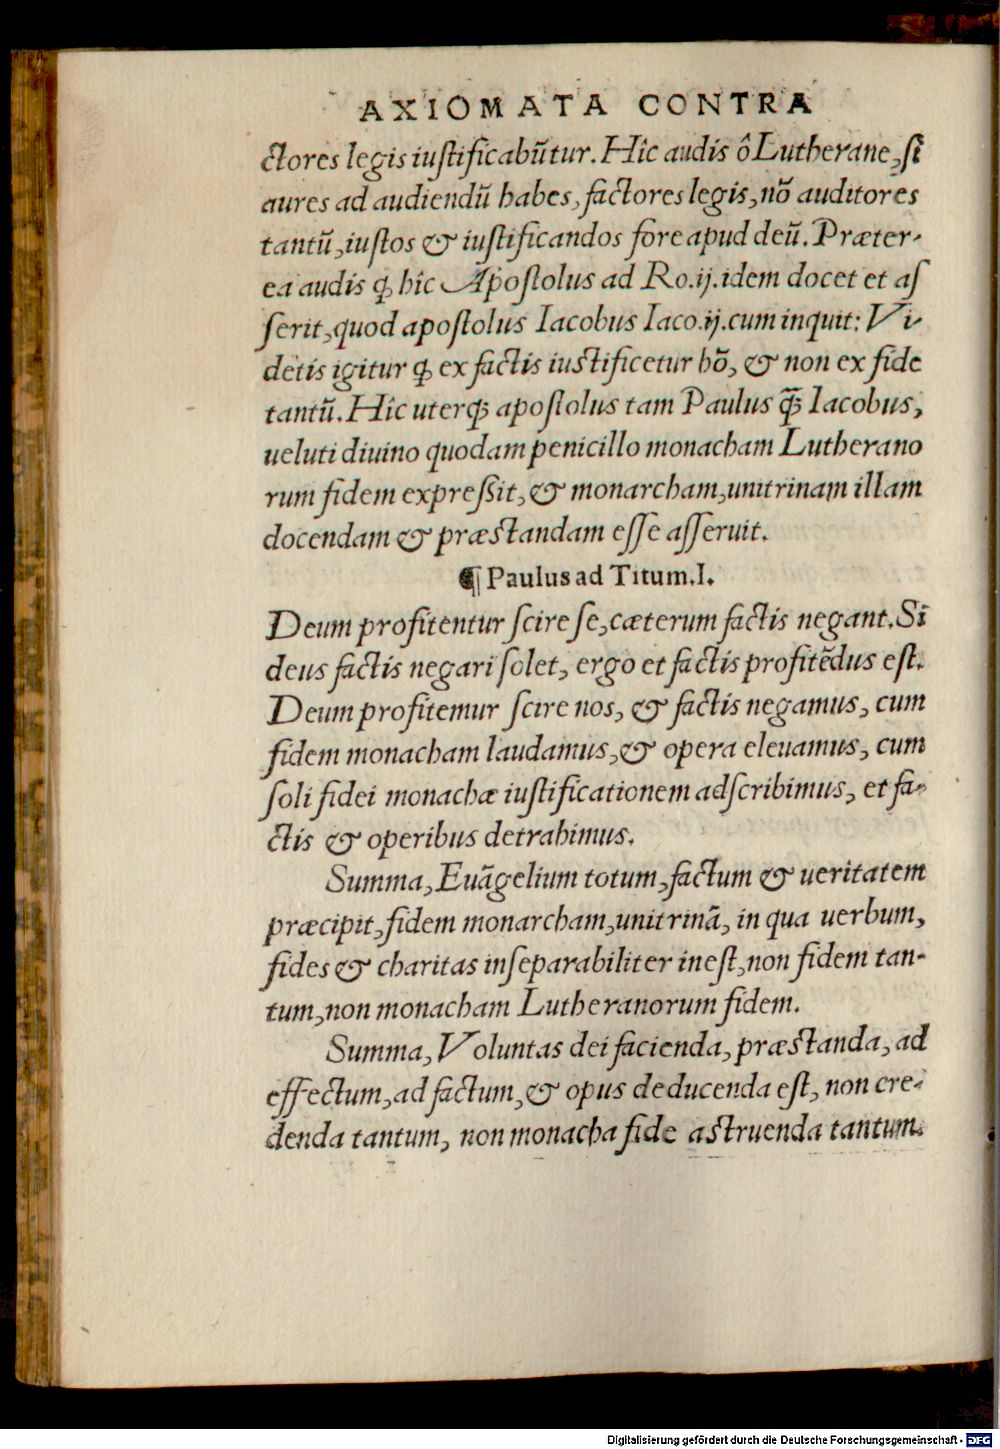 AXIOMATA CONTRA
ctores legis iustificabūtur. Hîc audis ô Lutherane, si
aures ad audiendū habes, factores legis, nō auditores
tantū, iustos & iustificandos fore apud deū. Præter-
ea audis ꝙ hîc Apostolus ad Ro. ij. idem docet et as
serit, quod apostolus Iacobus Iaco. ij. cum inquit: Vi-
detis igitur ꝙ ex factis iustificetur hō, & non ex fide
tantū. Hîc uterqꝫ apostolus tam Paulus ꝙ̄ Iacobus,
ueluti diuino quodam penicillo monacham Lutherano
rum fidem expressit, & monarcham, unitrinam illam
docendam & præstandam esse asseruit.
¶ Paulus ad Titum. I.
Deum profitentur scire se, cæterum factis negant. Si
deus factis negari solet, ergo et factis profitēdus est.
Deum profitemur scire nos, & factis negamus, cum
fidem monacham laudamus, & opera eleuamus, cum
soli fidei monachæ iustificationem adscribimus, et fa-
ctis & operibus detrahimus.
Summa, Euāgelium totum, factum & ueritatem
præcipit, fidem monarcham, unitrinā, in qua uerbum,
fides & charitas inseparabiliter inest, non fidem tan-
tum, non monacham Lutheranorum fidem.
Summa, Voluntas dei facienda, præstanda, ad
effectum, ad factum, & opus deducenda est, non cre-
denda tantum, non monacha fide astruenda tantum.
Digitalisierung gefördert durch die Deutsche Forschungsgemeinschaft - DFG